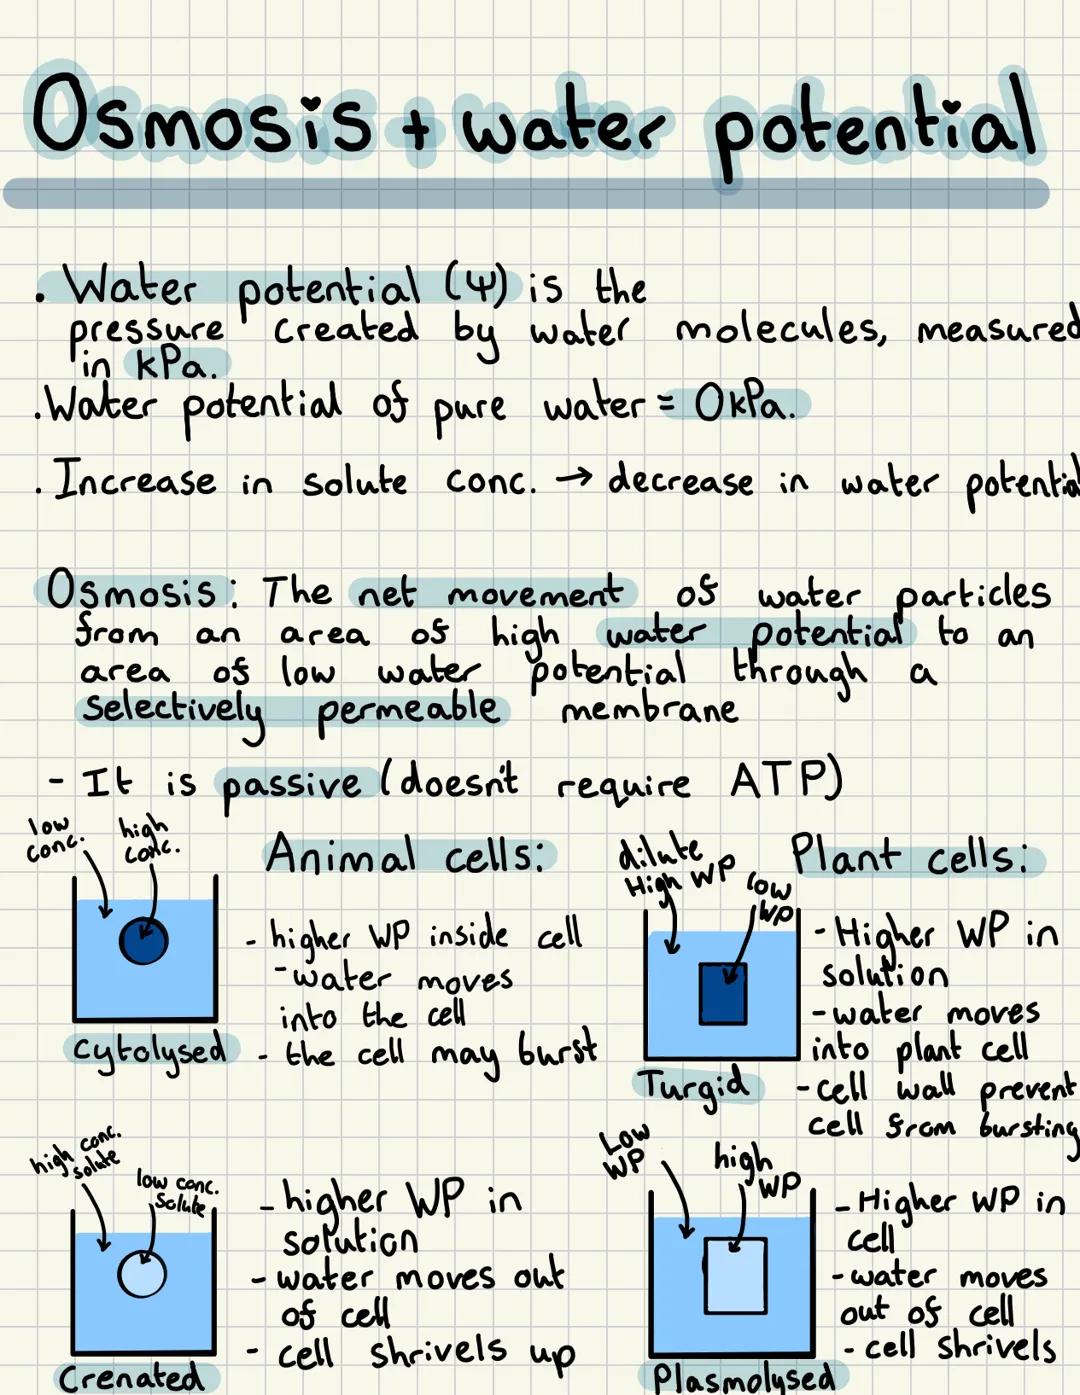 Osmosis + water potential
. Water potential (Ψ) is the
pressure created by water molecules, measured
in kPa.
. Water potential of pure water = 0kPa.
. Increase in solute conc. → decrease in water potential
Osmosis: The net movement of water particles
from an area of high water potential to an
area of low water potential through a
selectively permeable membrane
- It is passive (doesn't require ATP)
low conc.
high conc.
Animal cells:
- higher WP inside cell
- water moves
into the cell
- the cell may burst
Cytolysed
dilute
High WP
low
WP
Plant cells:
- Higher WP in
solution
- water moves
into plant cell
- cell wall prevent
cell from bursting
Turgid
high conc.
solute
low conc.
Solute
- higher WP in
solution
- water moves out
of cell
- cell shrivels up
Crenated
Low
WP
high
WP
- Higher WP in
cell
- water moves
out of cell
- cell shrivels
Plasmolysed